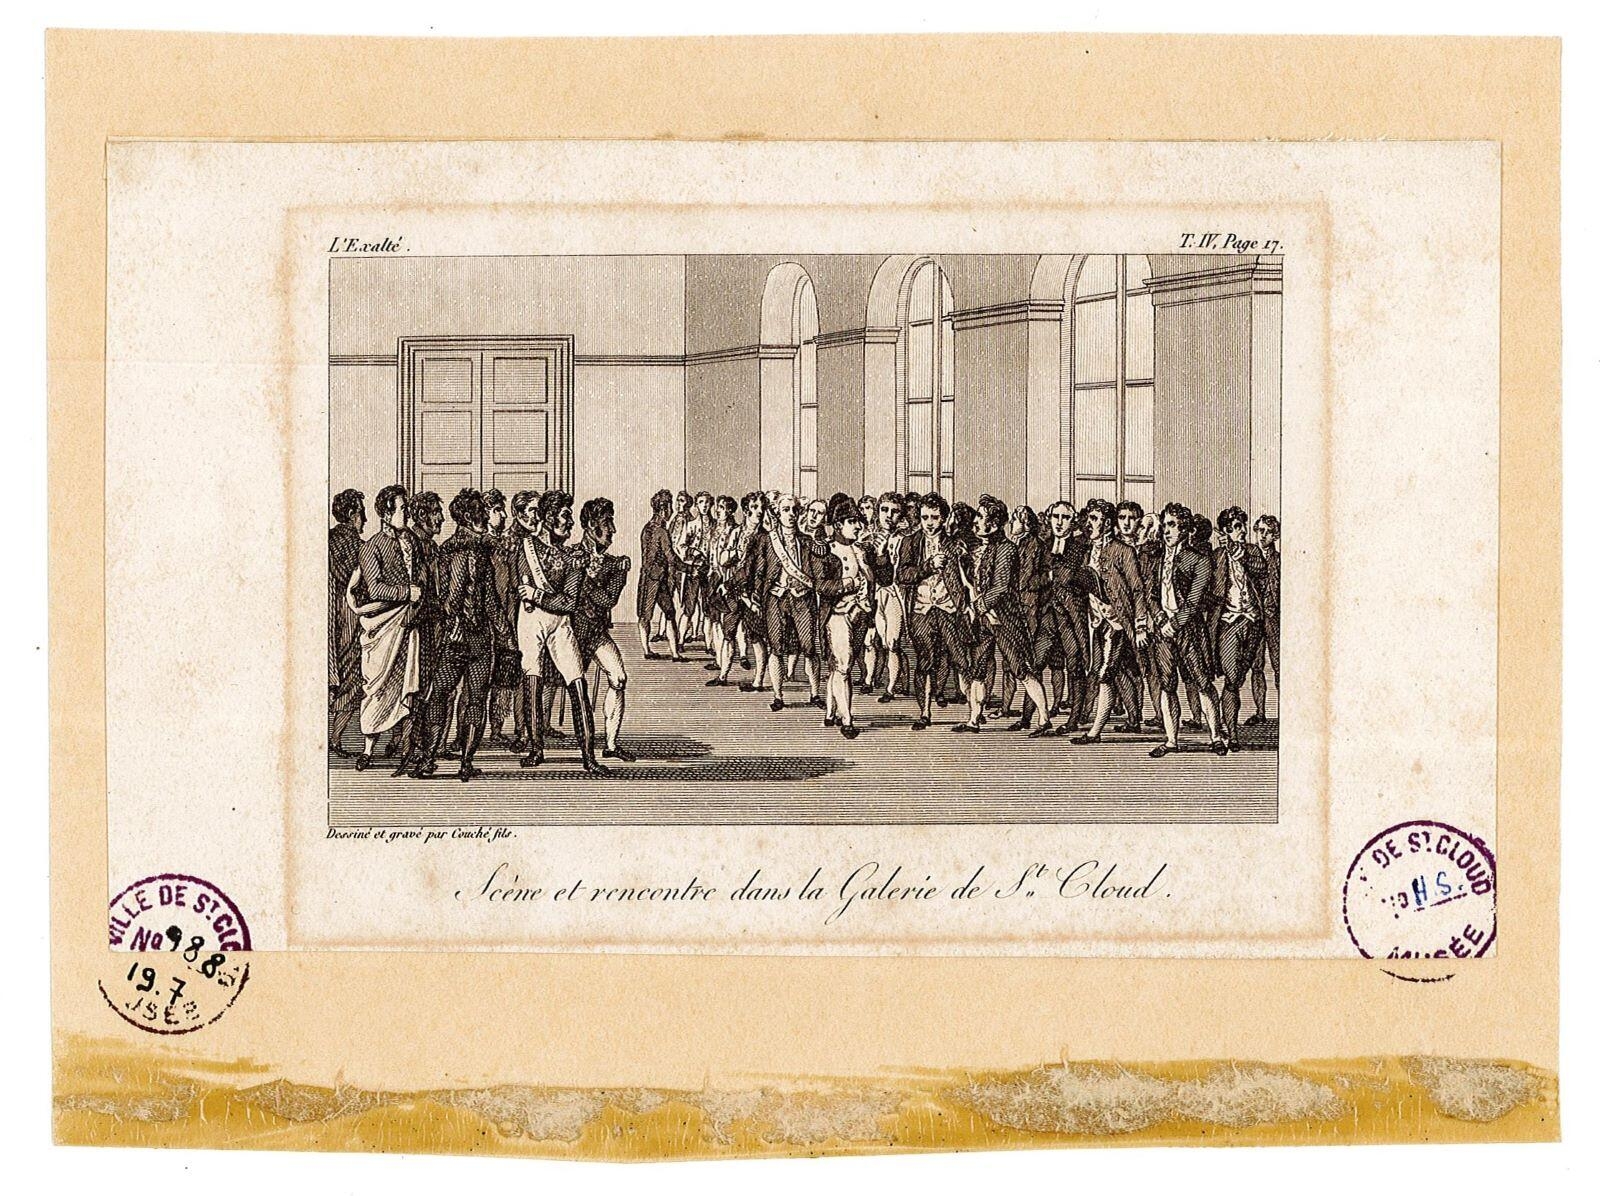 L'Exalté.
T. IV, Page 17.
Dessiné et gravé par Couché fils.
Scène et rencontre dans la Galerie de St. Cloud.
VILLE DE ST CLO
No 988
19.7
USÉE
DE ST CLOUD
No H.S.
MUSÉE